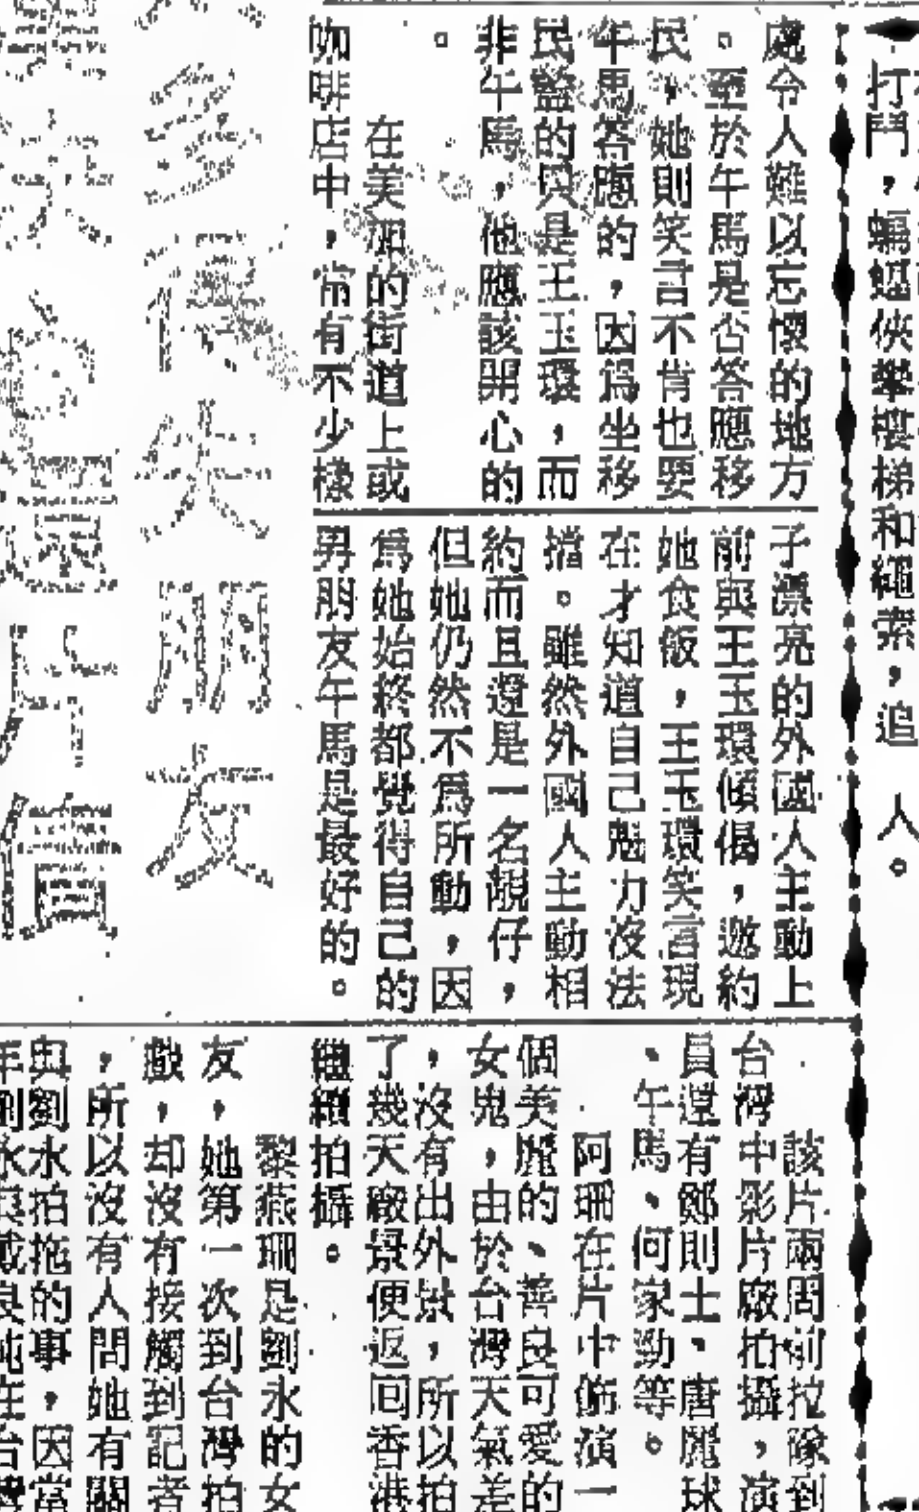 打鬥，蝙蝠俠攀樓梯和繩索，追
人。
處令人難以忘懷的地方
。至於午馬是否答應移
民，她則笑言不肯也要
午馬答應的，因爲坐移
民監的只是王玉環，而
非午馬，他應該開心的
。
在美加的街道上或
咖啡店中，常有不少樣
子漂亮的外國人主動上
前與王玉環傾偈，邀約
她食飯，王玉環笑言現
在才知道自己魅力沒法
擋。雖然外國人主動相
約而且還是一名靚仔，
但她仍然不爲所動，因
爲她始終都覺得自己的
男朋友午馬是最好的。
失朋友
片價
該片兩周前拉隊到
台灣中影片廠拍攝，演
員還有鄭則士、唐麗球
、午馬、何家勁等。
阿珊在片中飾演一
個美麗的、善良可愛的
女鬼，由於台灣天氣差
，沒有出外景，所以拍
了幾天廠景便返回香港
繼續拍攝。
黎燕珊是劉永的女
友，她第一次到台灣拍
戲，却沒有接觸到記者
，所以沒有人問她有關
與劉永拍拖的事，因當